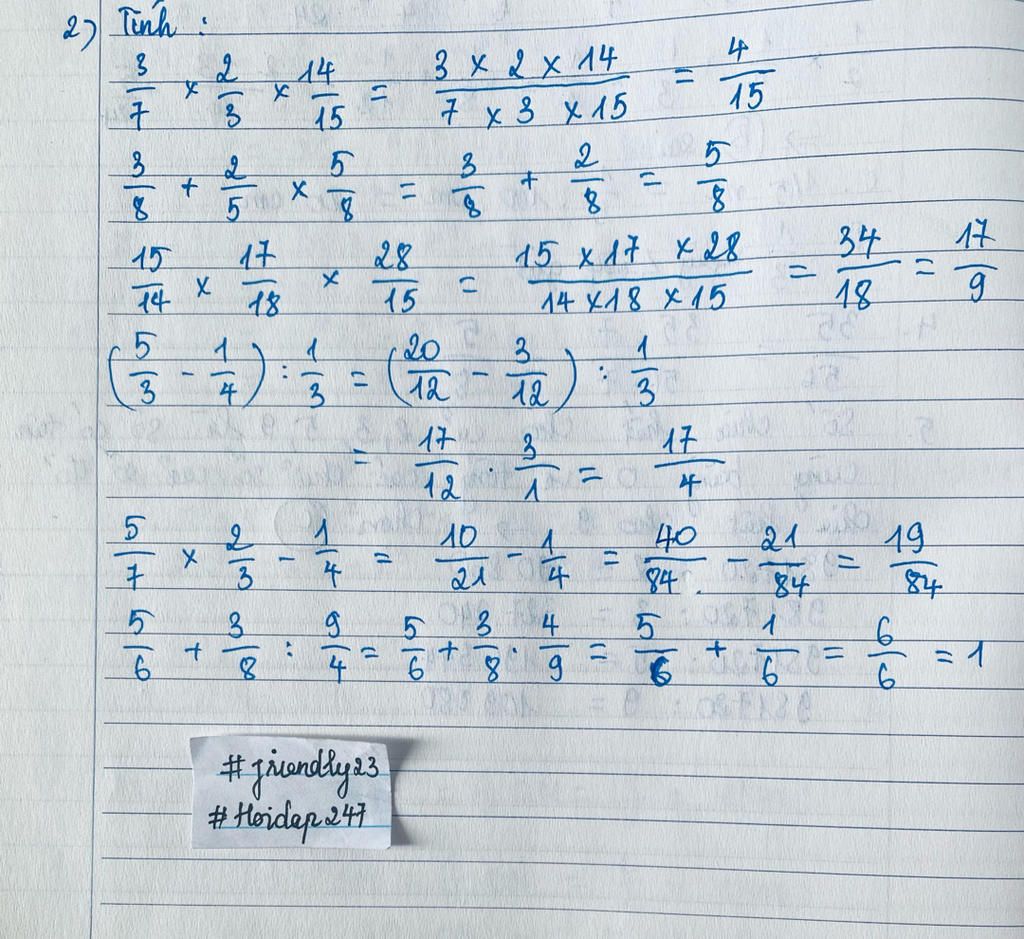 2) Tính :
3/7 × 2/3 × 14/15 = (3 × 2 × 14)/(7 × 3 × 15) = 4/15
3/8 + 2/5 × 5/8 = 3/8 + 2/8 = 5/8
15/14 × 17/18 × 28/15 = (15 × 17 × 28)/(14 × 18 × 15) = 34/18 = 17/9
(5/3 - 1/4) : 1/3 = (20/12 - 3/12) : 1/3
= 17/12 . 3/1 = 17/4
5/7 × 2/3 - 1/4 = 10/21 - 1/4 = 40/84 - 21/84 = 19/84
5/6 + 3/8 : 9/4 = 5/6 + 3/8 . 4/9 = 5/6 + 1/6 = 6/6 = 1
#friendly23
#Hoidap247